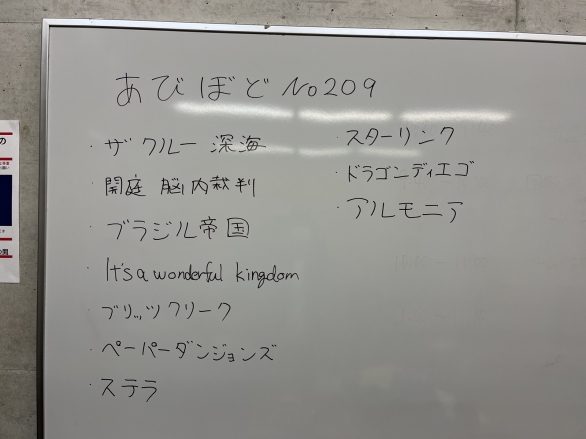 あびぼど No209
・ザ クルー 深海
・開廷 脳内裁判
・ブラジル帝国
・It's a wonderful kingdom
・ブリッツクリーク
・ペーパーダンジョンズ
・ステラ
・スターリンク
・ドラゴンディエゴ
・アルモニア